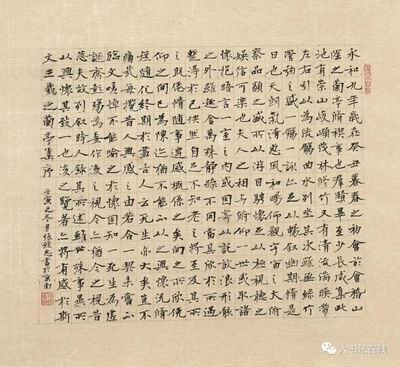 永和九年歲在癸丑暮春之初會於會稽山
陰之蘭亭脩禊事也群賢畢至少長咸集此
地有崇山峻領茂林脩竹又有清流激湍映帶
左右引以為流觴曲水列坐其次雖無絲竹
管弦之盛一觴一詠亦足以暢敘幽情是
日也天朗氣清惠風和暢仰觀宇宙之大俯
察品類之盛所以遊目騁懷足以極視聽之
娛信可樂也夫人之相與俯仰一世或取諸
懷抱晤言一室之內或因寄所託放浪形骸
之外雖趣舍萬殊靜躁不同當其欣於所遇
暫得於己快然自足不知老之將至及其所
之既倦情隨事遷感慨係之矣向之所欣俛
仰之間已為陳迹猶不能不以之興懷況脩
短隨化終期於盡古人云死生亦大矣豈不
痛哉每攬昔人興感之由若合一契未嘗不
臨文嗟悼不能喻之於懷固知一死生為虛
誕齊彭殤為妄作後之視今亦由今之視昔
悲夫故列敘時人錄其所述雖世殊事異所
以興懷其致一也後之覽者亦將有感於斯
文王羲之蘭亭集序 壬寅之冬月張 忠書於京南
大书法在线